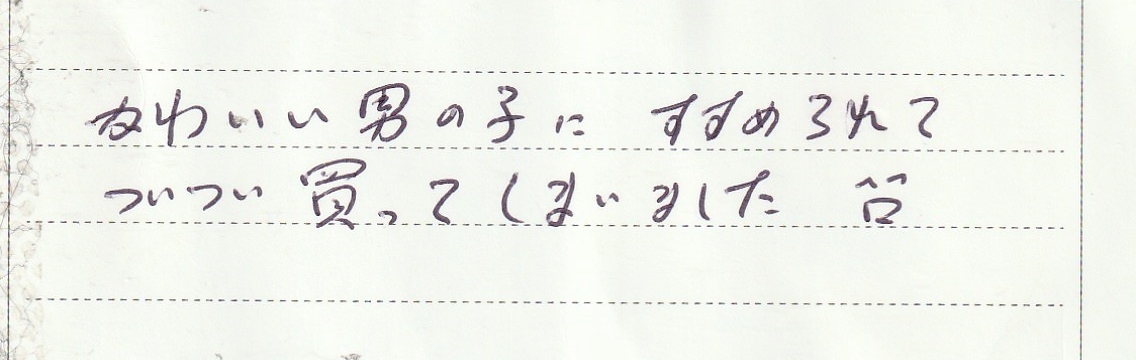 かわいい男の子に すすめられて
ついつい買ってしまいました ^^